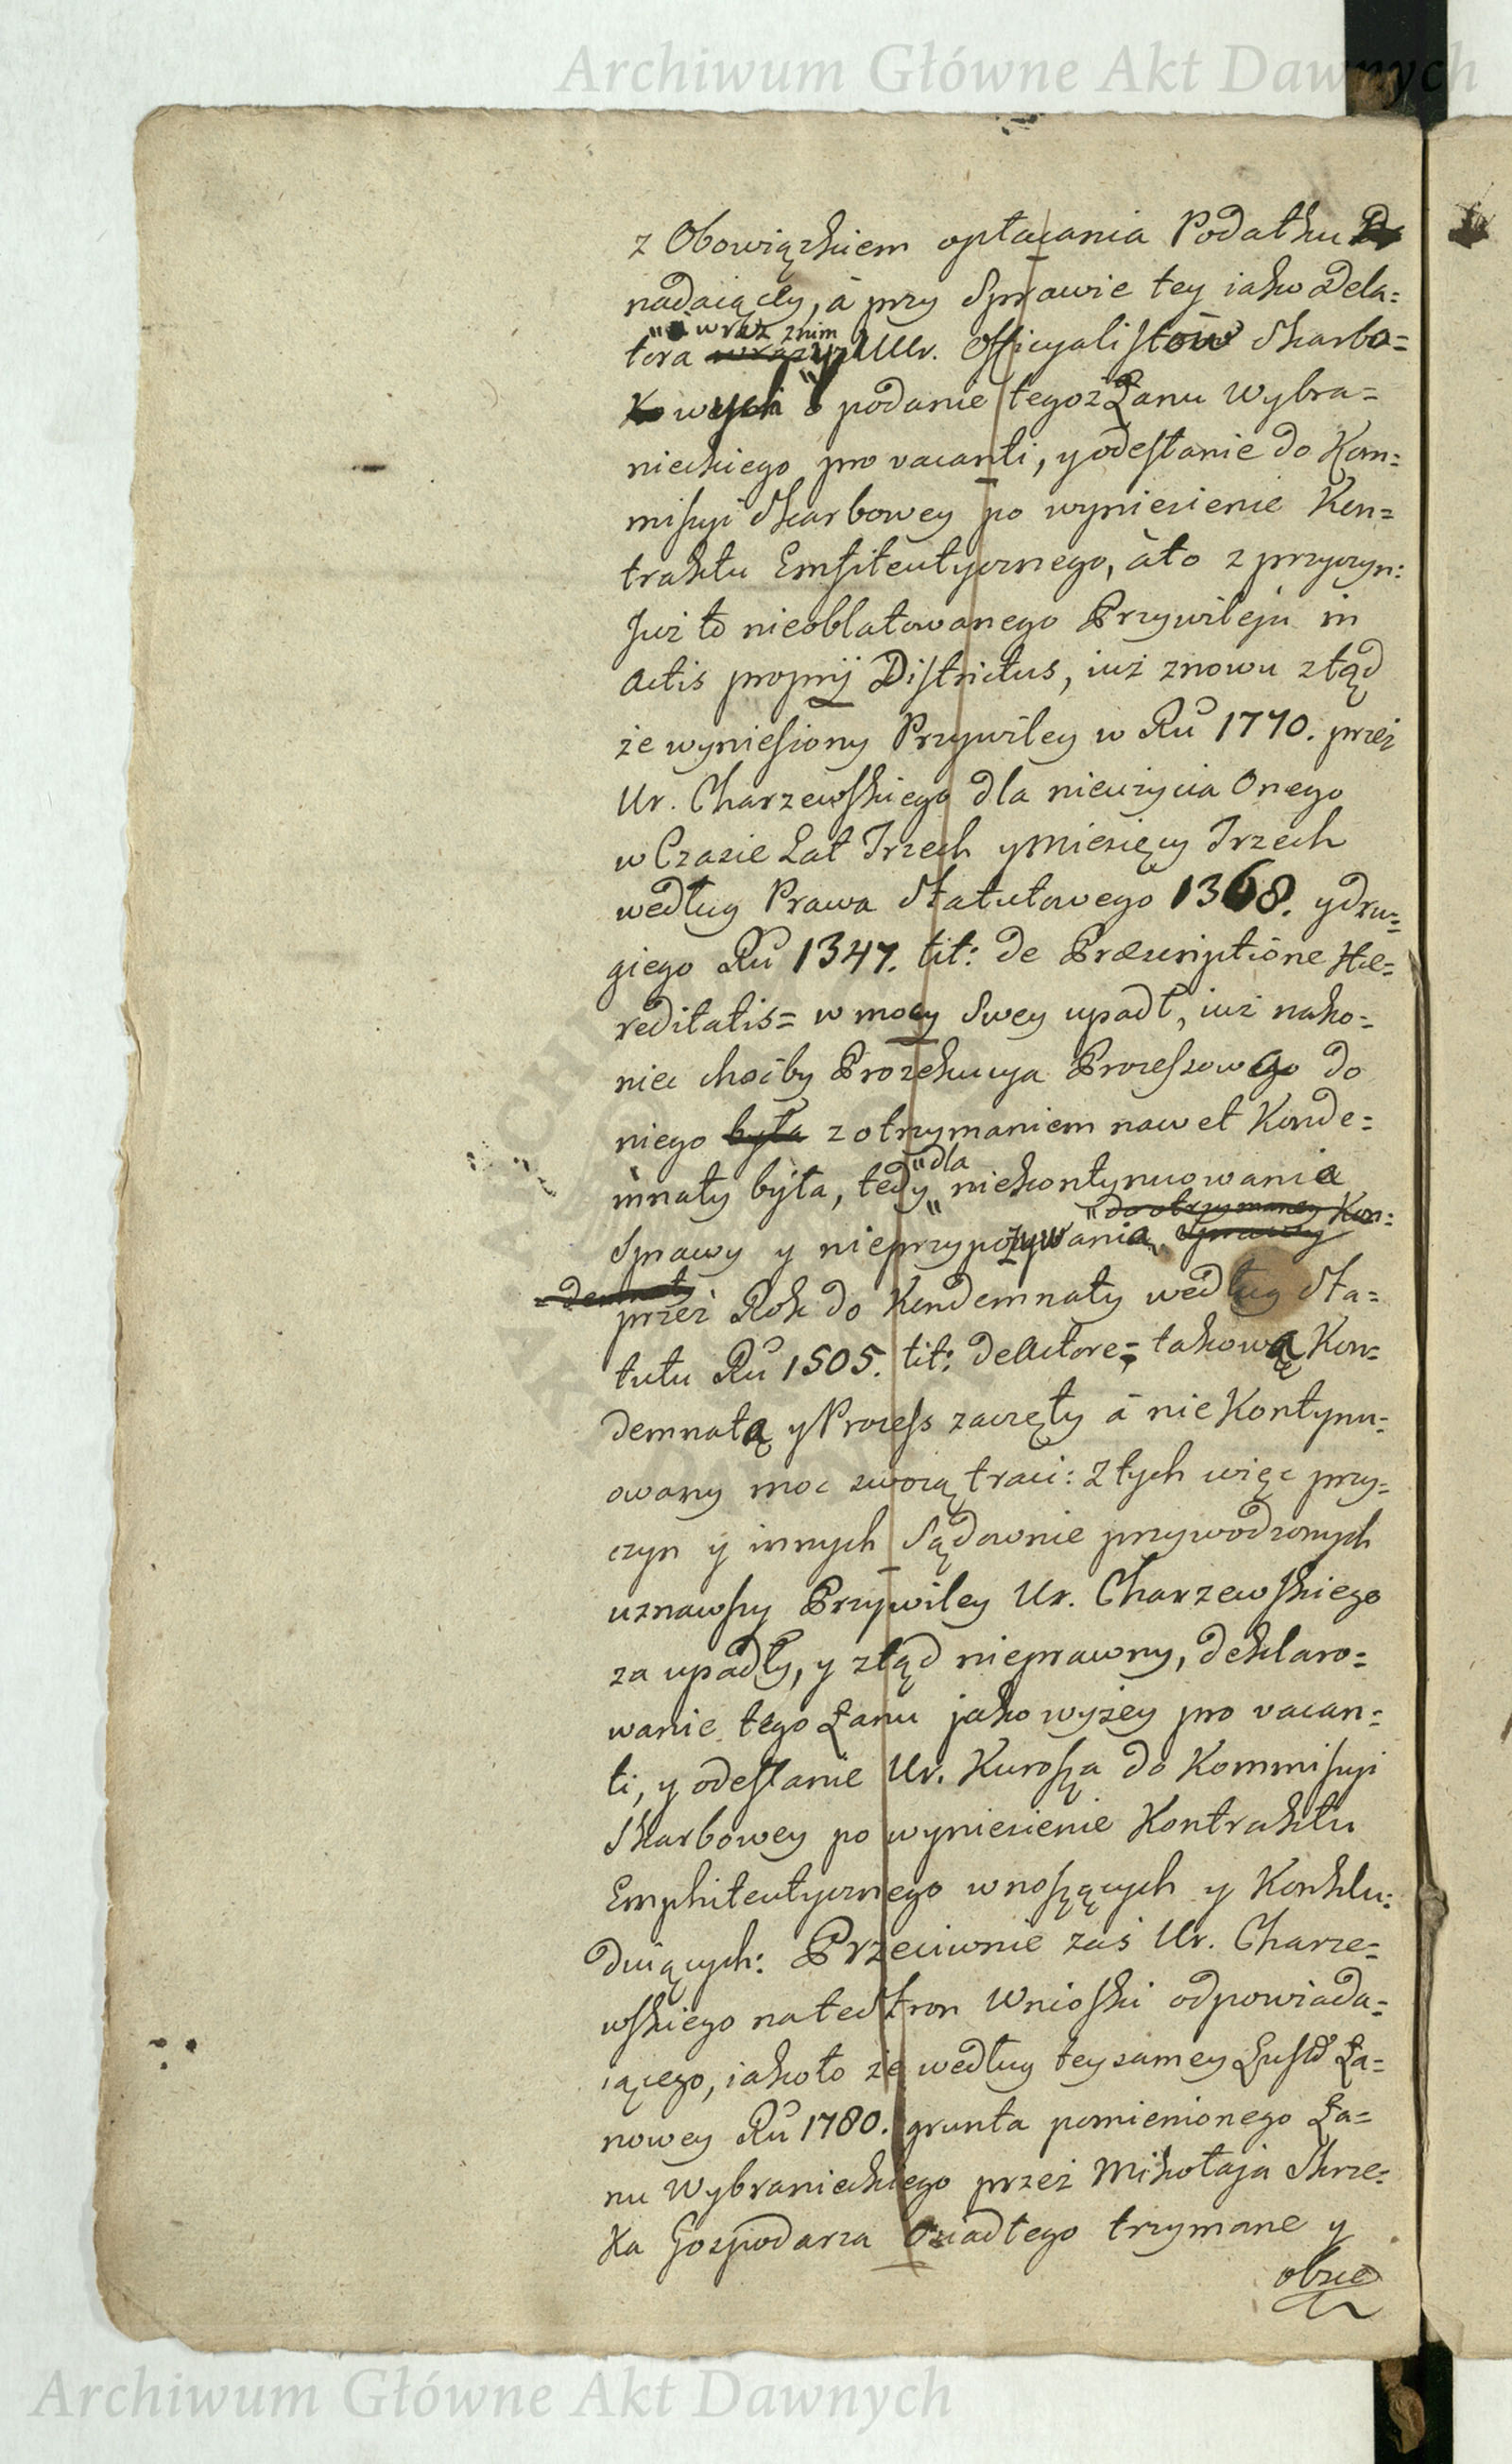 Archiwum Główne Akt Dawnych
z Obowiązkiem opłacania Podatku
nadaiący, á przy Sprawie tey iako Dela=
" wraz znim
tora Ur. Officyalistów Skarbo=
wych o podanie tegoż Łanu Wybra=
nieckiego pro vacanti, y odesłanie do Kom=
missyi Skarbowey po wyniesienie Kon=
traktu Emfiteutycznego, áto z przyczyn:
Już to nieoblatowanego Przywileju in
Actis proprij Districtus, iuż znowu ztąd
że wyniesiony Przywiley w Ru 1770. przez
Ur. Charzewskiego dla nieużycia Onego
w Czasie Lat Trzech y Miesięcy Trzech
według Prawa Statutowego 1368. y dru=
giego Ru 1347. tit: de Præscriptione Hæ=
reditatis= w mocy Swey upadł, iuż nako=
niec choćby Prozekucya Processowego do
niego była z otrzymaniem nawet Konde=
mnaty była, tedy "dla" niekontynuowania
"do otrzymaney Kon=
Sprawy y nieprzypozywania Sprawy
=demnaty
przez Rok do Kondemnaty według Sta=
tutu Ru 1505. tit: de Actore= takową Kon=
demnatą y Process zaczęty á nie Kontynu=
owany moc swoią traci: Z tych więc przy=
czyn y innych Sądownie przywodzonych
uznawszy Przywiley Ur. Charzewskiego
za upadły, y ztąd nieprawny, deklaro=
wanie tego Łanu jako wyżey pro vacan=
ti, y odesłanie Ur. Kurosza do Kommissyi
Skarbowey po wyniesienie Kontraktu
Emphiteutycznego wnoszących y Konklu=
duiących: Przeciwnie zaś Ur. Charze=
wskiego na też Stron Wnioski odpowiada=
iącego, iakoto że według teysamey Lustr Ła=
nowey Ru 1780. grunta pomienionego Ła=
nu Wybranieckiego przez Mikołaja Skrze=
ka Gospodarza Osiadłego trzymane y
obsie
Archiwum Główne Akt Dawnych